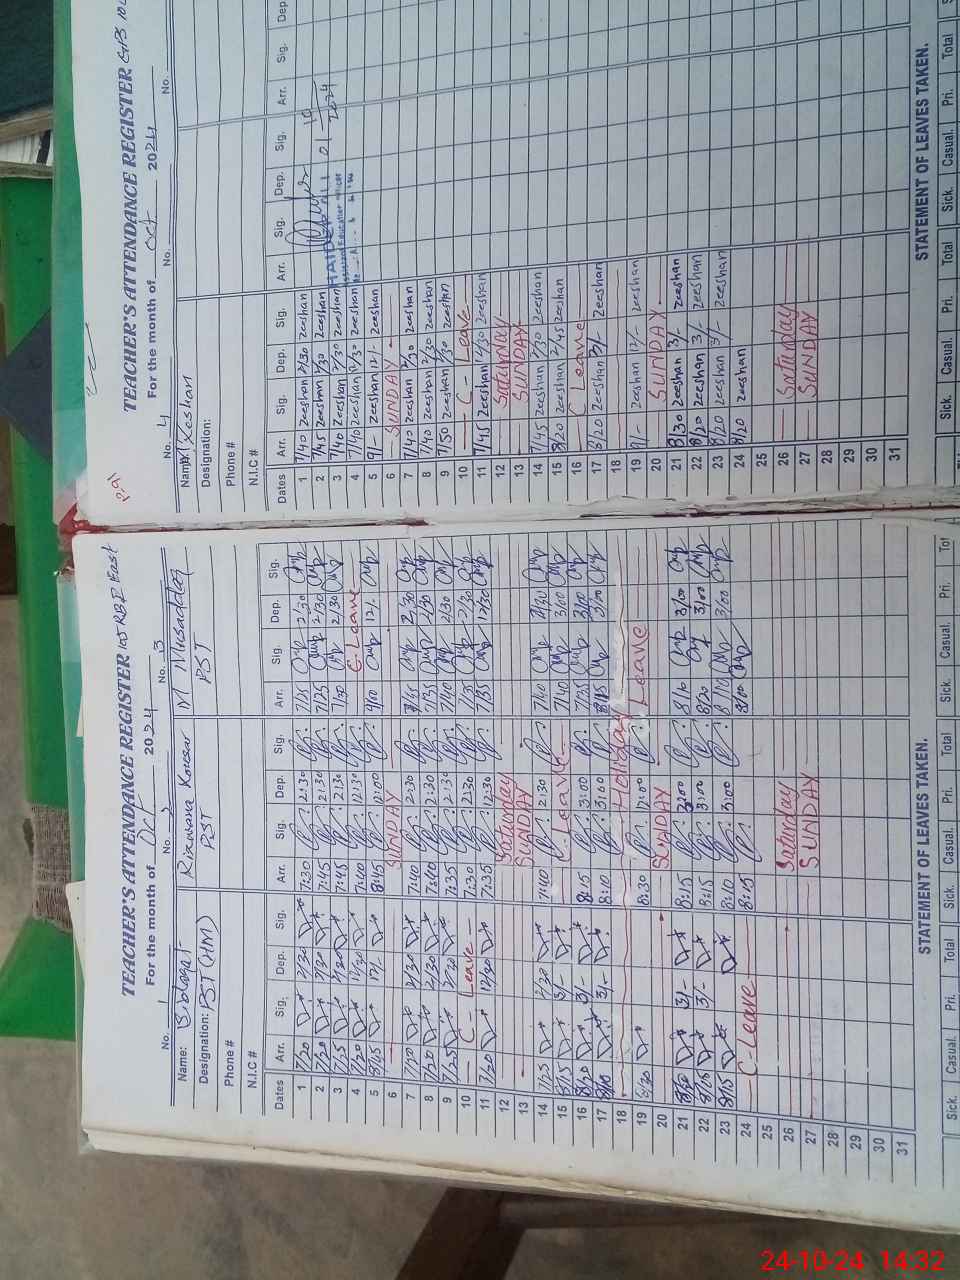 TEACHER'S ATTENDANCE REGISTER
For the month of Oct 2024
No. 1 No. 2 No. 3
Name: Rizwana Kousar M Musaddaq
Designation: PST (HM) PST PST
Phone #
N.I.C #
Dates Arr. Sig. Dep. Sig. Arr. Sig. Dep. Sig. Arr. Sig. Dep. Sig.
1 7/20 2/30 7:30 2:30 7/25 2/30
2 7/20 2/30 7:45 2:30 7/25 2/30
3 2/30 7:45 2:30 7/30 2/30
4 7/20 12/30 7:40 12:30 C. Leave
5 12/- 8:45 12:00 9/00 12/-
6 SUNDAY
7 7/20 2/30 7:40 2:30 2/30
8 7/20 2/30 7:40 2:30 7/35 2/30
9 7/25 2/30 7:35 2:30 7/40 2/30
10 C - Leave 7:30 2:30 7/35 2/30
11 7/20 12/30 7:35 12:30 7/35 12/30
12 Saturday
13 SUNDAY
14 7/25 2/30 7:40 2:30 7/40 2/30
15 8/15 3/- C Leave 7/40 3/00
16 8/20 3/- 8:15 3:00 7/35 3/00
17 3/- 8:10 3:00 8/15 3/00
18 Holiday
19 8/30 8:30 12:00 Leave
20 SUNDAY
21 3/- 8:15 3:00 8/10 3/00
22 8/05 3/- 8:15 3:00 8/20 3/00
23 8/15 8:10 3:00 8/10 3/00
24 C-Leave 8:15 8/00
25
26 Saturday
27 SUNDAY
28
29
30
31
STATEMENT OF LEAVES TAKEN.
Sick. Casual. Pri. Total Sick. Casual. Pri. Total Sick. Casual. Pri.
TEACHER'S ATTENDANCE REGISTER
For the month of Oct 2024
No. 4 No. No.
Name: Zeshan
Designation:
Phone #
N.I.C #
Dates Arr. Sig. Dep. Sig. Arr. Sig. Dep. Sig. Arr. Sig. Dep.
1 7/40 zeeshan 2/30 zeeshan
2 7/45 zeeshan 2/30 zeeshan
3 7/40 zeeshan 2/30 zeeshan
4 7/40 zeeshan zeeshan
5 9/- zeeshan 12/- zeeshan
6 SUNDAY
7 7/40 zeeshan 2/30 zeeshan
8 7/40 zeeshan 2/30 zeeshan
9 7/50 zeeshan 2/30 zeeshan
10 C - Leave
11 7/45 zeeshan 12/30 zeeshan
12 Saturday
13 SUNDAY
14 7/45 zeeshan 2/30 zeeshan
15 8/20 zeeshan 2/45 zeeshan
16 C Leave
17 8/20 zeeshan 3/- zeeshan
18
19 9/- zeeshan 12/- zeeshan
20 SUNDAY
21 8/30 zeeshan 3/- zeeshan
22 8/20 zeeshan 3/- zeeshan
23 8/20 zeeshan 3/- zeeshan
24 8/20 zeeshan
25
26 Saturday
27 SUNDAY
28
29
30
31
STATEMENT OF LEAVES TAKEN.
Sick. Casual. Pri. Total Sick. Casual. Pri. Total
24-10-24 14:32